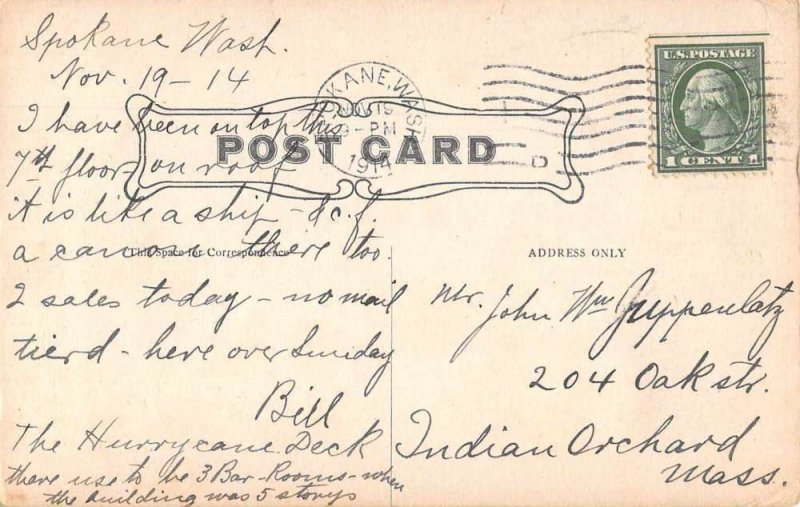 Spokane Wash.
Nov. 19-14
I have been on top this
7th floor on roof
it is like a ship - &c.f.
a canon there too.
2 sales today - no mail
tierd - here over Sunday
Bill
The Hurrycane Deck
there use to be 3 Bar-Rooms-when
the building was 5 storys
SPOKANE, WASH.
NOV 19
PM
1914
POST CARD
This Space for Correspondence
ADDRESS ONLY
U.S. POSTAGE
1 CENT 1
Mr. John Wm Juppenlatz
204 Oak str.
Indian Orchard
Mass.